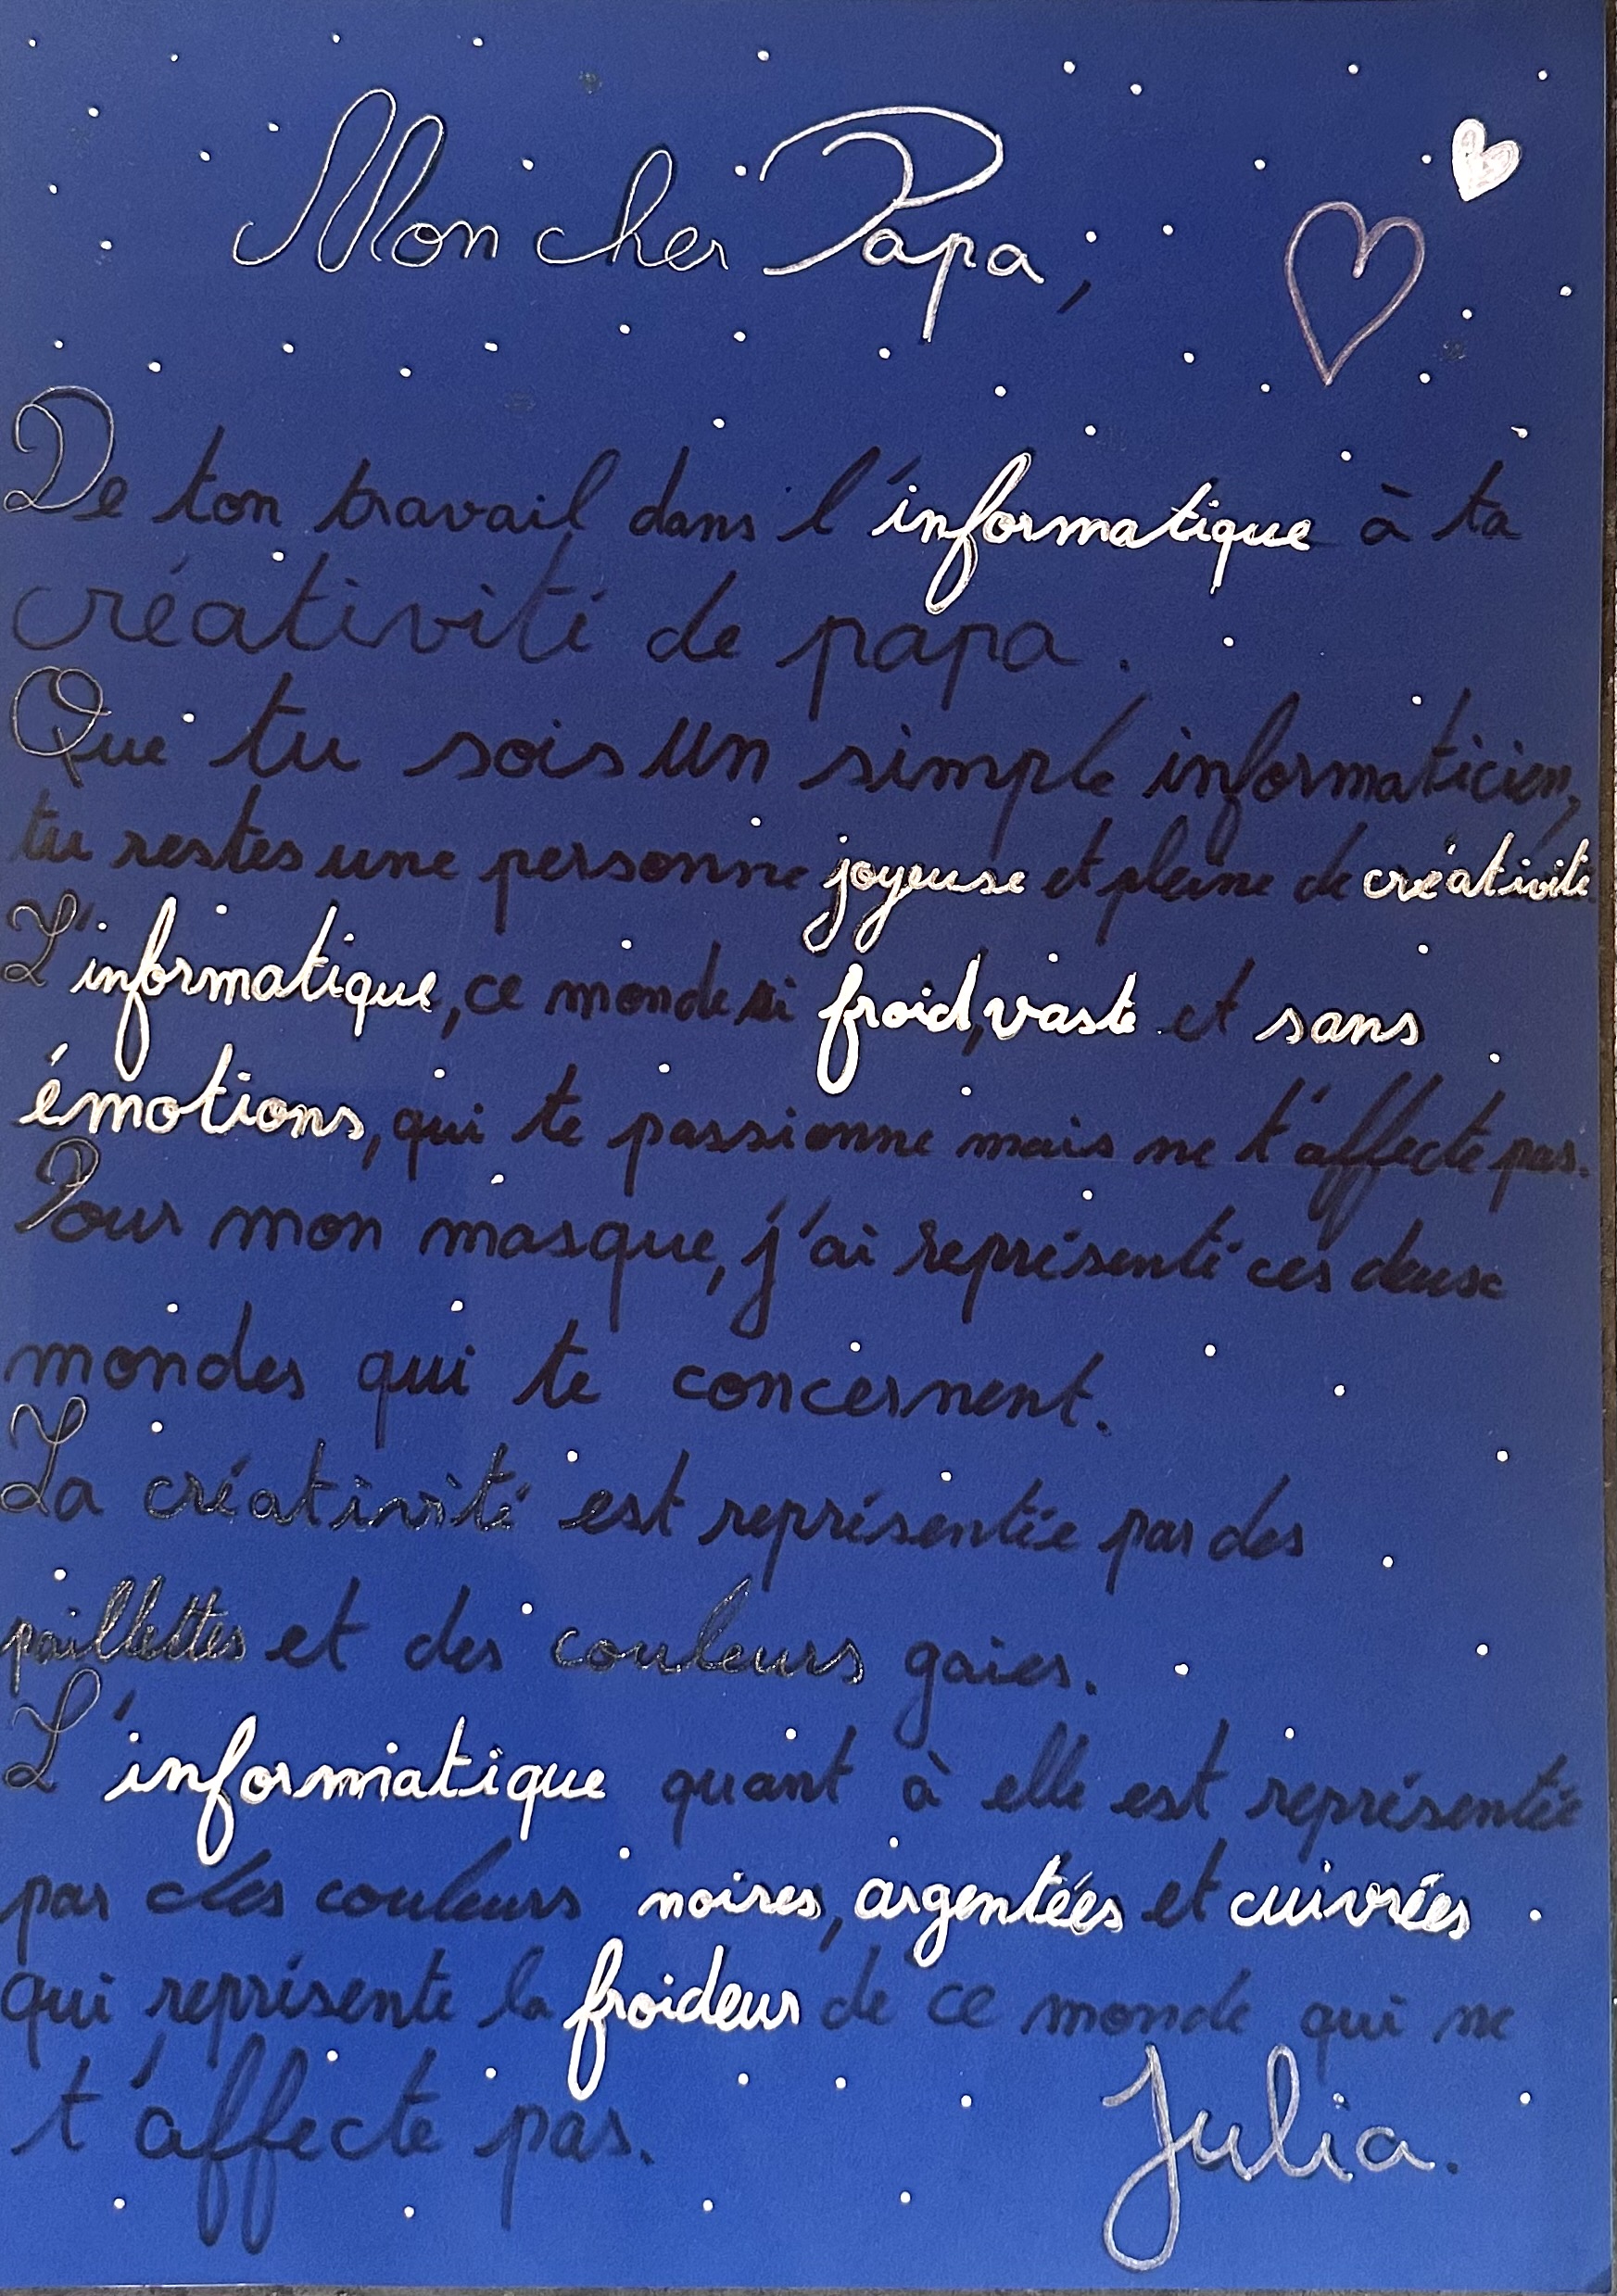 Mon cher Papa,
De ton travail dans l'informatique à ta
créativité de papa.
Que tu sois un simple informaticien,
tu restes une personne joyeuse et pleine de créativité.
L'informatique, ce monde si froid, vaste et sans
émotions, qui te passionne mais ne t'affecte pas.
Pour mon masque, j'ai représenté ces deux
mondes qui te concernent.
La créativité est représentée par des
paillettes et des couleurs gaies.
L'informatique quant à elle est représentée
par des couleurs noires, argentées et cuivrées
qui représente la froideur de ce monde qui ne
t'affecte pas.
Julia.